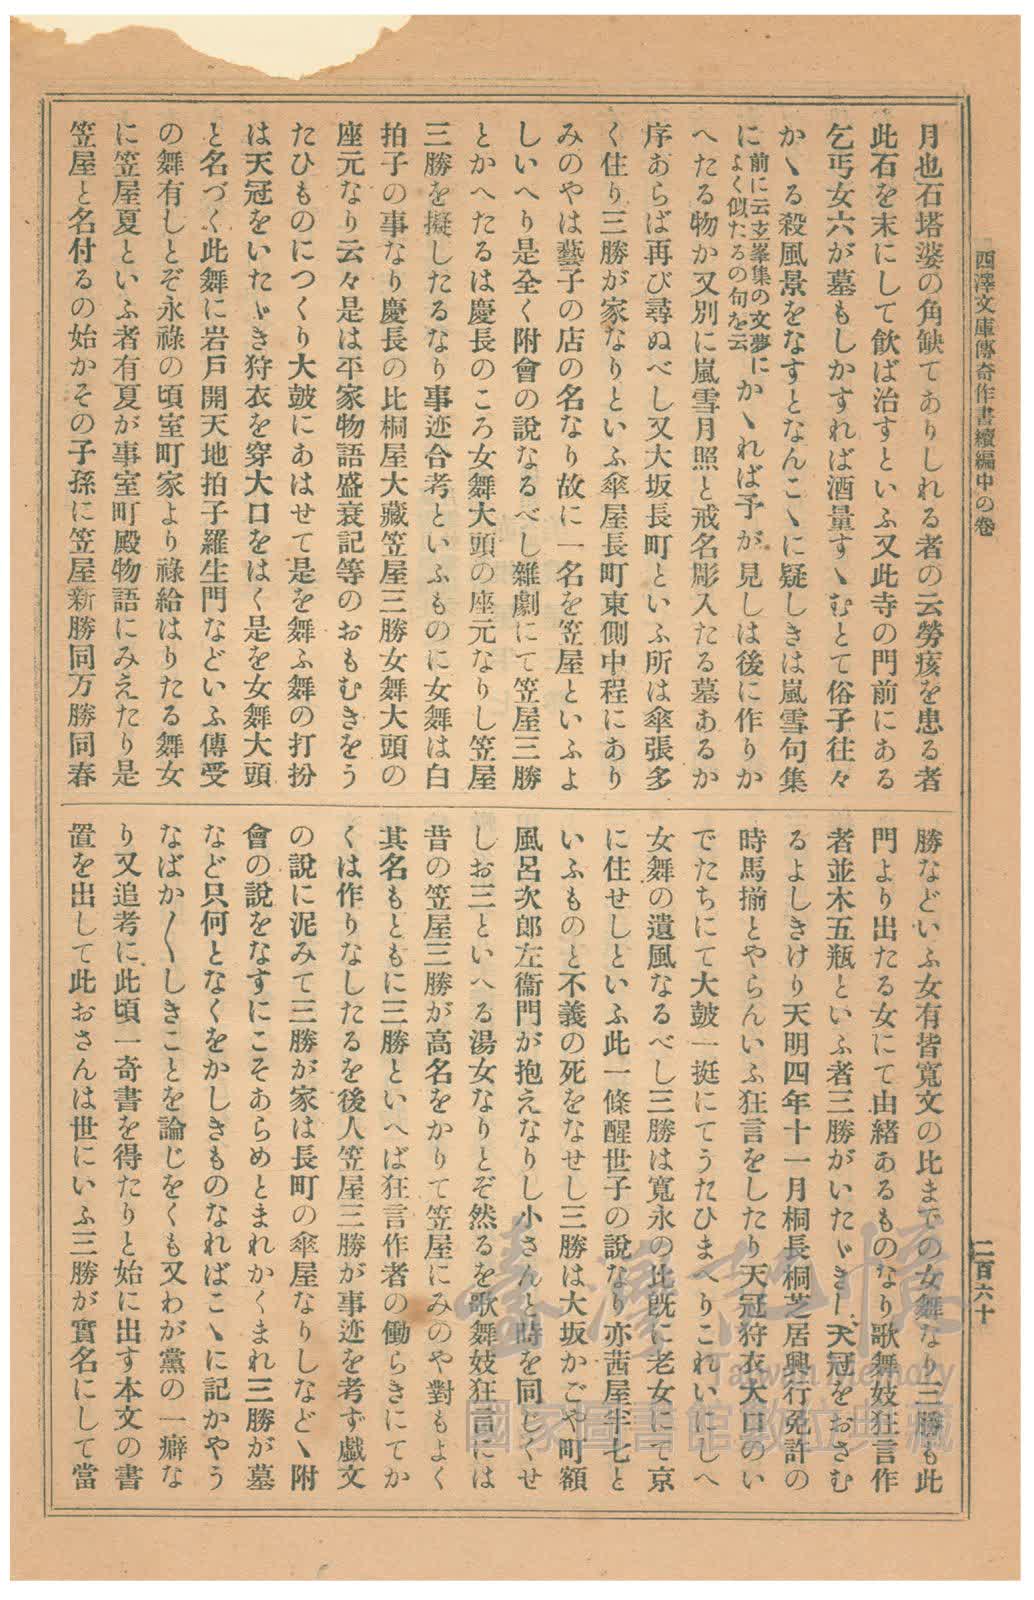 西澤文庫傳奇作書續編中の卷
二百六十
月也石塔婆の角缺てありしれる者の云勞痎を患る者
此石を末にして飮ば治すといふ又此寺の門前にある
乞丐女六が墓もしかすれば酒量すゝむとて俗子往々
かゝる殺風景をなすとなんこゝに疑しきは嵐雪句集
に前に云玄峯集の文夢によく似たるの句を云にかゝれば予が見しは後に作りか
へたる物か又別に嵐雪月照と戒名彫入たる墓あるか
序あらば再び尋ぬべし又大坂長町といふ所は傘張多
く住り三勝が家なりといふ傘屋長町東側中程にあり
みのやは藝子の店の名なり故に一名を笠屋といふよ
しいへり是全く附會の說なるべし雜劇にて笠屋三勝
とかへたるは慶長のころ女舞大頭の座元なりし笠屋
三勝を擬したるなり事迹合考といふものに女舞は白
拍子の事なり慶長の比桐屋大藏笠屋三勝女舞大頭の
座元なり云々是は平家物語盛衰記等のおもむきをう
たひものにつくり大皷にあはせて是を舞ふ舞の打扮
は天冠をいたゞき狩衣を穿大口をはく是を女舞大頭
と名づく此舞に岩戶開天地拍子羅生門などいふ傳受
の舞有しとぞ永祿の頃室町家より祿給はりたる舞女
に笠屋夏といふ者有夏が事室町殿物語にみえたり是
笠屋と名付るの始かその子孫に笠屋新勝同万勝同春
勝などいふ女有皆寬文の比までの女舞なり三勝も此
門より出たる女にて由緖あるものなり歌舞妓狂言作
者並木五瓶といふ者三勝がいたゞきし天冠をおさむ
るよしきけり天明四年十一月桐長桐芝居興行免許の
時馬揃とやらんいふ狂言をしたり天冠狩衣大口のい
でたちにて大皷一挺にてうたひまへりこれいにしへ
女舞の遺風なるべし三勝は寬永の比旣に老女にて京
に住せしといふ此一條醒世子の說なり亦茜屋半七と
いふものと不義の死をなせし三勝は大坂かごや町額
風呂次郎左衞門が抱えなりし小さんと時を同じくせ
しお三といへる湯女なりとぞ然るを歌舞妓狂言には
昔の笠屋三勝が高名をかりて笠屋にみのや對もよく
其名もともに三勝といへば狂言作者の働らきにてか
くは作りなしたるを後人笠屋三勝が事迹を考ず戯文
の說に泥みて三勝が家は長町の傘屋なりしなどゝ附
會の說をなすにこそあらめとまれかくまれ三勝が墓
など只何となくをかしきものなればこゝに記かやう
なばか〱しきことを論じをくも又わが黨の一癖な
り又追考に此頃一奇書を得たりと始に出す本文の書
置を出して此おさんは世にいふ三勝が實名にして當
臺灣記憶
Taiwan Memory
國家圖書館數位典藏